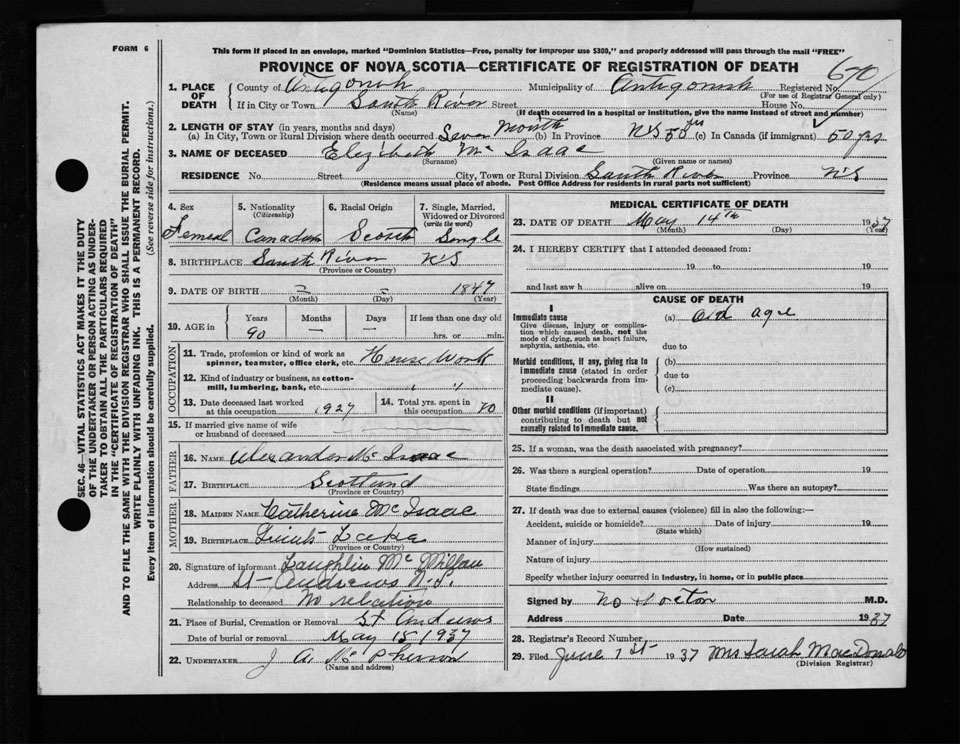 FORM 6
This form if placed in an envelope, marked "Dominion Statistics—Free, penalty for improper use $300," and properly addressed will pass through the mail "FREE"
PROVINCE OF NOVA SCOTIA—CERTIFICATE OF REGISTRATION OF DEATH
670
1. PLACE OF DEATH County of Antigonish Municipality of Antigonish Registered No.
(For use of Registrar General only)
If in City or Town South River Street House No.
(Name) (If death occurred in a hospital or institution, give the name instead of street and number)
2. LENGTH OF STAY (in years, months and days)
(a) In City, Town or Rural Division where death occurred Month (b) In Province NS yrs (c) In Canada (if immigrant) 50 yrs
3. NAME OF DECEASED Elezibeth Mc Isaac
(Surname) (Given name or names)
RESIDENCE No. Street City, Town or Rural Division South River Province N'S
(Residence means usual place of abode. Post Office Address for residents in rural parts not sufficient)
4. Sex 5. Nationality (Citizenship) 6. Racial Origin 7. Single, Married, Widowed or Divorced (write the word)
Femeal Canadian Scotch Single
8. BIRTHPLACE South River N'S
(Province or Country)
9. DATE OF BIRTH = = 1847
(Month) (Day) (Year)
10. AGE in Years Months Days If less than one day old
90 — — hrs. or min.
OCCUPATION
11. Trade, profession or kind of work as spinner, teamster, office clerk, etc. House Work
12. Kind of industry or business, as cotton-mill, lumbering, bank, etc. " "
13. Date deceased last worked at this occupation 1927 14. Total yrs. spent in this occupation 70
15. If married give name of wife or husband of deceased
FATHER
16. NAME Alexander Mc Isaac
17. BIRTHPLACE Scotland
(Province or Country)
MOTHER
18. MAIDEN NAME Catherine McIsaac
19. BIRTHPLACE Lake
(Province or Country)
20. Signature of informant Laughlin Mc Millan
Address St Andrews N.S.
Relationship to deceased No relation
21. Place of Burial, Cremation or Removal St Andrews
Date of burial or removal May 15 1937
22. UNDERTAKER J A. McPherson
(Name and address)
MEDICAL CERTIFICATE OF DEATH
23. DATE OF DEATH May 14th 1937
(Month) (Day) (Year)
24. I HEREBY CERTIFY that I attended deceased from:
19 to 19
and last saw h alive on 19
CAUSE OF DEATH
I
Immediate cause (a) Old age
Give disease, injury or complication which caused death, not the mode of dying, such as heart failure, asphyxia, asthenia, etc.
due to
Morbid conditions, if any, giving rise to immediate cause (stated in order proceeding backwards from immediate cause).
(b)
due to
(c)
II
Other morbid conditions (if important) contributing to death but not causally related to immediate cause.
25. If a woman, was the death associated with pregnancy?
26. Was there a surgical operation? Date of operation 19
State findings Was there an autopsy?
27. If death was due to external causes (violence) fill in also the following:—
Accident, suicide or homicide? Date of injury 19
(State which)
Manner of injury
(How sustained)
Nature of injury
Specify whether injury occurred in industry, in home, or in public place
Signed by No Doctor M.D.
Address Date 1937
28. Registrar's Record Number
29. Filed June 1st 1937 Mrs Sarah MacDonald
(Division Registrar)
SEC. 46—VITAL STATISTICS ACT MAKES IT THE DUTY
OF THE UNDERTAKER OR PERSON ACTING AS UNDER-
TAKER TO OBTAIN ALL THE PARTICULARS REQUIRED
IN THE "CERTIFICATE OF REGISTRATION OF DEATH"
AND TO FILE THE SAME WITH THE DIVISION REGISTRAR WHO SHALL ISSUE THE BURIAL PERMIT.
WRITE PLAINLY WITH UNFADING INK. THIS IS A PERMANENT RECORD.
Every item of information should be carefully supplied. (See reverse side for instructions.)